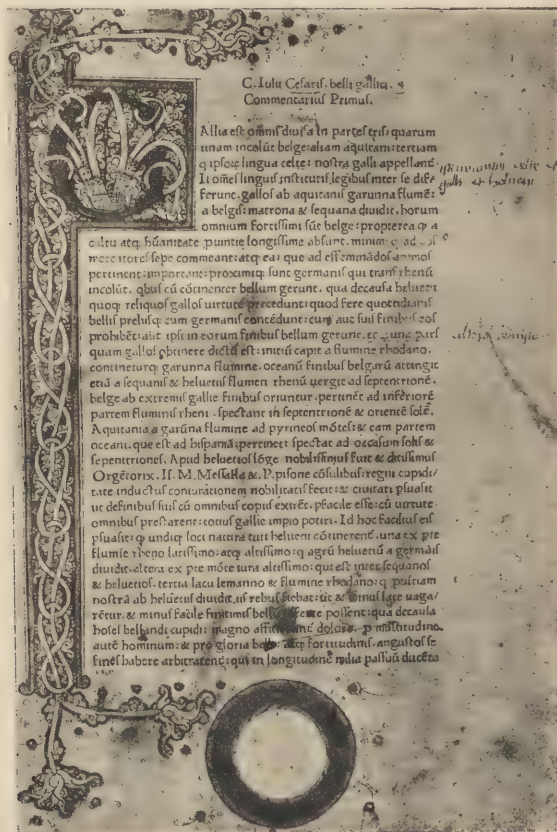 C. Iulii Cesaris. belli gallici.
Commentarius Primus.
Allia est omnis diuisa in partes tris: quarum
unam incolūt belge: aliam aquitani: tertiam
q ipsoꝝ lingua celte: nostra galli appellant̄.
Ii oēs linguis institutis legibus inter se diffe
ferunt. gallos ab aquitanis garunna flumē:
a belgis: matrona & sequana diuidit. horum
omnium fortissimi sūt belge: propterea ꝙ a
cultu atq; hūanitate longissime absunt. minim
mercatores sepe commeant: atq; ea: que ad effeminādos animos
pertinent: important: proximiq; sunt germanis qui trans rhenū
incolūt. qbus cū cōtinenter bellum gerunt. qua decausa heluetii
quoq; reliquos gallos uirtute precedunt: quod fere quotidianis
bellis preliisq; cum germanis concedunt: cum aut suis finibus eos
prohibēt: aut ipsi in eorum finibus bellum gerunt. pars
quam gallos obtinere dictū est: initiū capit a flumine rhodano.
contineturq; garunna flumine. oceanū finibus belgarū attingit
etiā a sequanis & heluetiis flumen rhenū uergit ad septentrionē.
belge ab extremis gallie finibus oriuntur. pertinēt ad inferiorē
partem fluminis rheni. spectant in septentrionē & orientē solē.
Aquitania a garūna flumine ad pyrineos mōtes: & eam partem
oceani. que est ad hispaniā: pertinet: spectat ad occasum solis &
septentriones. Apud heluetios lōge nobilissimus fuit & ditissimus
Orgētorix. Is. M. Messalla &. P. pisone cōsulibus: regni cupidi
tate inductus coniurationem nobilitatis fecit: & ciuitati psuasit
ut definibus suis cū omnibus copiis exirēt. pfacile esse: cū uirtute
omnibus prestarent: totius gallie impio potiri. Id hoc facilius eis
psuasit: q undiq; loci natura cōtinent̄. una ex pte
flumīe rheno latissimo: atq; altissimo: q agrū heluetiū a germāis
diuidit. altera ex pte mōte iura altissimo: qui est inter sequanos
& heluetios. tertia lacu lemanno & flumine rhodano: q puītiam
nostrā ab heluetiis diuidit. iis rebus fiebat: ut & minus late uaga
rētur. & minus facile finitimis bellū possent: qua decausa
hoīes bellandi cupidi: magno dolore. p multitudine
autē hominum: & pro gloria belli atq; fortitudinis. angustos se
fines habere arbitrarent̄: qui in longitudinē milia passuū ducēta